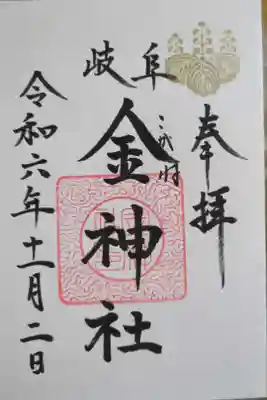 奉拝
岐阜
金神社
こがね
令和六年十一月二日